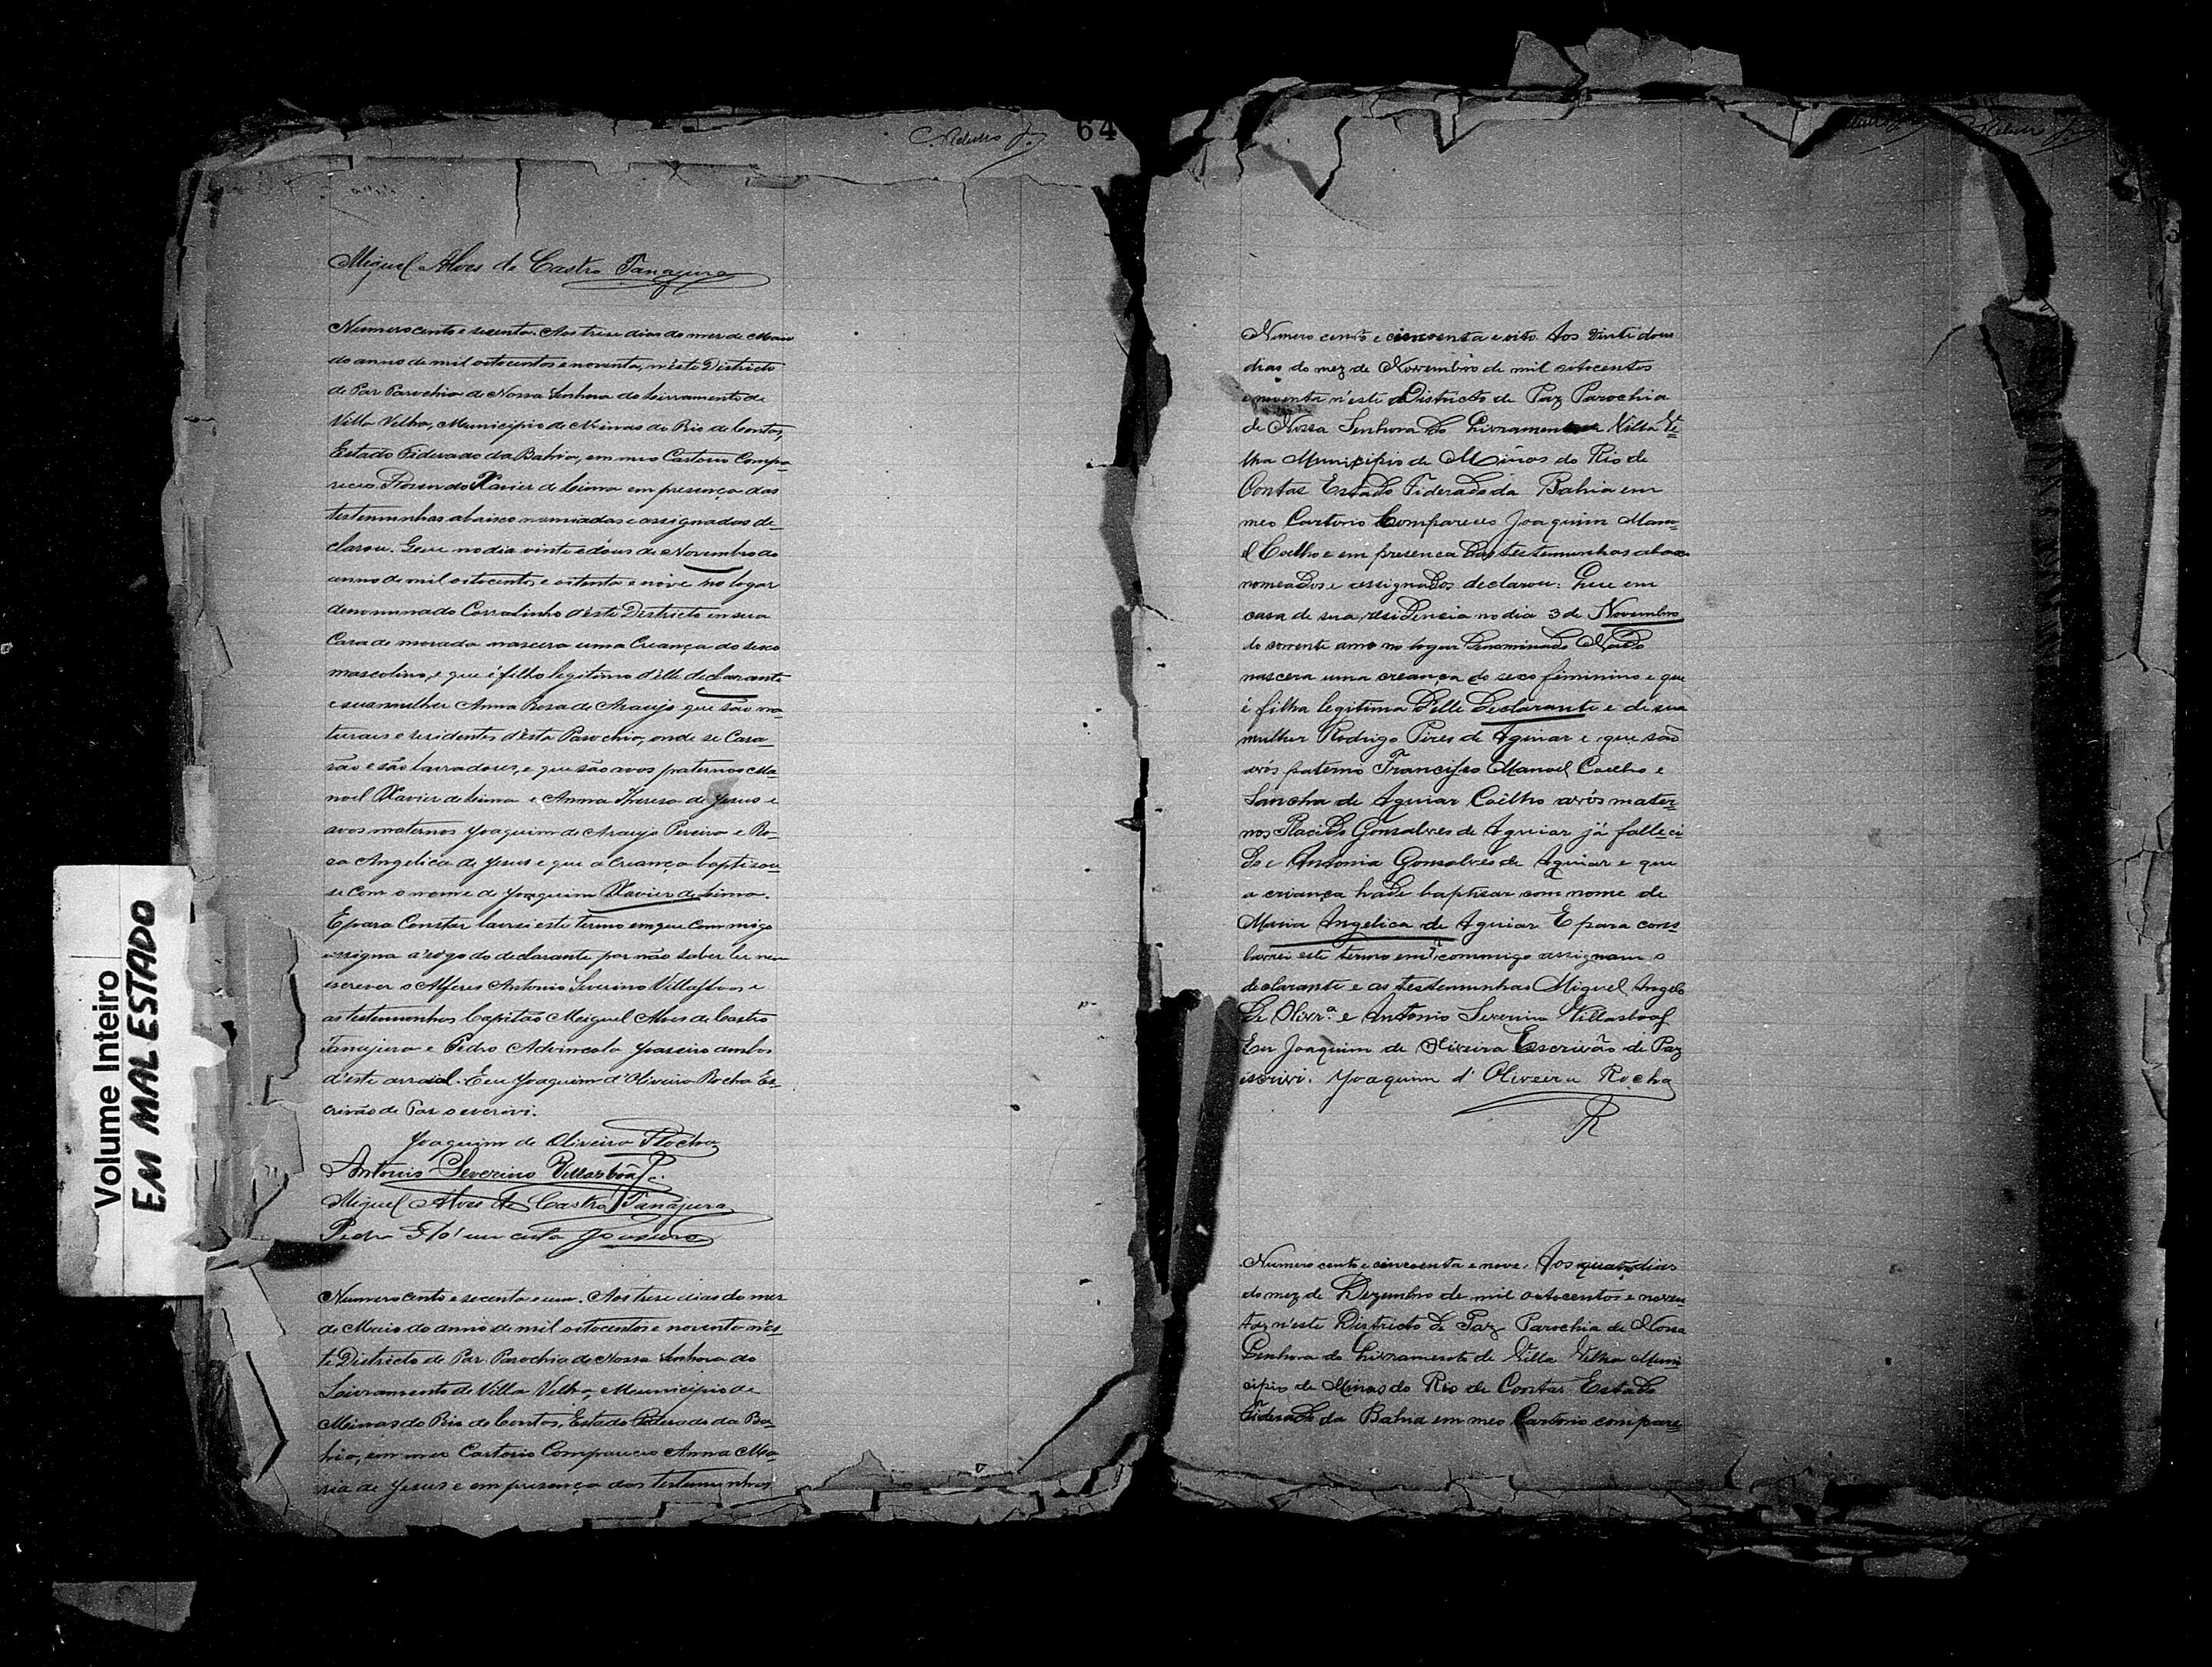 64
Miguel Alves de Castro Tanajura
Numero cento e secenta. Aos trese dias do mes de Maio
do anno de mil oitocentos e noventa, n'este Districto
de Paz Parochia de Nossa Senhora do Livramento de
Villa Velha, Municipio de Minas do Rio de Contas,
Estado Federado da Bahia, em meo Cartorio Compa-
receo Rosendo Xavier de Lima em presença das
testemunhas abaixo nomiadas e assignadas de-
clarou. Que no dia vinte e dous de Novembro do
anno de mil oitocentos e oitenta e nove no logar
denominado Corralinho d'este Districto em sua
Casa de morada nascera uma Creança do sexo
mascolino, e que é filho legitimo d'elle declarante
e sua mulher Anna Rosa de Araujo que são na-
turaes e residentes d'esta Parochia, onde se Casa-
rão e são lavradores, e que são avos paternos Ma
noel Xavier de Lima e Anna Theresa de Jesus e
avos maternos Joaquim de Araujo Pereira e Ro-
sa Angelica de Jesus e que a Creança baptisou-
se com o nome de Joaquim Xavier de Lima.
E para Constar lavrei este termo em que commigo
assigna á rogo do declarante por não saber ler nem
escrever o Alferes Antonio Severino Villasboas e
as testemunhas Capitão Miguel Alves de Castro
Tanajura e Pedro Advincola Joaseiro ambos
d'este arraial. E eu Joaquim d'Oliveira Rocha Es-
crivão de Paz o escrivi.
Joaquim de Oliveira Rocha
Antonio Severino Villasbôas
Miguel Alves de Castro Tanajura
Pedro
Numero cento e secenta e um. Aos trese dias do mes
de Maio do anno de mil oitocentos e noventa n'es-
te Districto de Paz Parochia de Nossa Senhora do
Livramento de Villa Velha, Municipio de
Minas do Rio de Contas, Estado Federado da Ba-
hia, em meo Cartorio Compareceo Anna Ma-
ria de Jesus e em presença das testemunhas
Numero cento e cincoenta e oito. Aos vinte dous
dias do mez de Novembro de mil oitocentos
e noventa n'este Districto de Paz Parochia
de Nossa Senhora do Livramento Villa Ve-
lha Municipio de Minas do Rio de
Contas Estado Federado da Bahia em
meo Cartorio Compareceo Joaquim Mano-
el Coelho e em presença das testemunhas abaxo
nomeados e assignados declarou: Que em
casa de sua residencia no dia 3 de Novembro
do corrente anno no logar denominado
nascera uma creança do sexo feminino e que
é filha legitima d'elle Declarante e de sua
mulher Rodrigo Pires de Aguiar e que são
avós paterno Francisco Manoel Coelho e
Sancha de Aguiar Coêlho avós mater-
nos Placido Gonsalves de Aguiar já falleci
do e Antonia Gonsalves de Aguiar e que
a criança hade baptisar com nome de
Maria Angelica de Aguiar E para cons
lavrei este termo em q commigo assignam o
declarante e as testemunhas Miguel Angelo
de Olivrª e Antonio Severino Villasboas
Eu Joaquim de Oliveira Escrivão de Paz
escrivi. Joaquim d'Oliveira Rocha
R
Numero cento e cincoenta e nove. Aos quatro dias
do mez de Dezembro de mil oitocentos e noven-
ta, n'este Districto de Paz Parochia de Nossa
Senhora do Livramento de Villa Velha Muni
cipio de Minas do Rio de Contas Estado
Federado da Bahia em meo Cartorio compare-
Volume Inteiro
EM MAL ESTADO